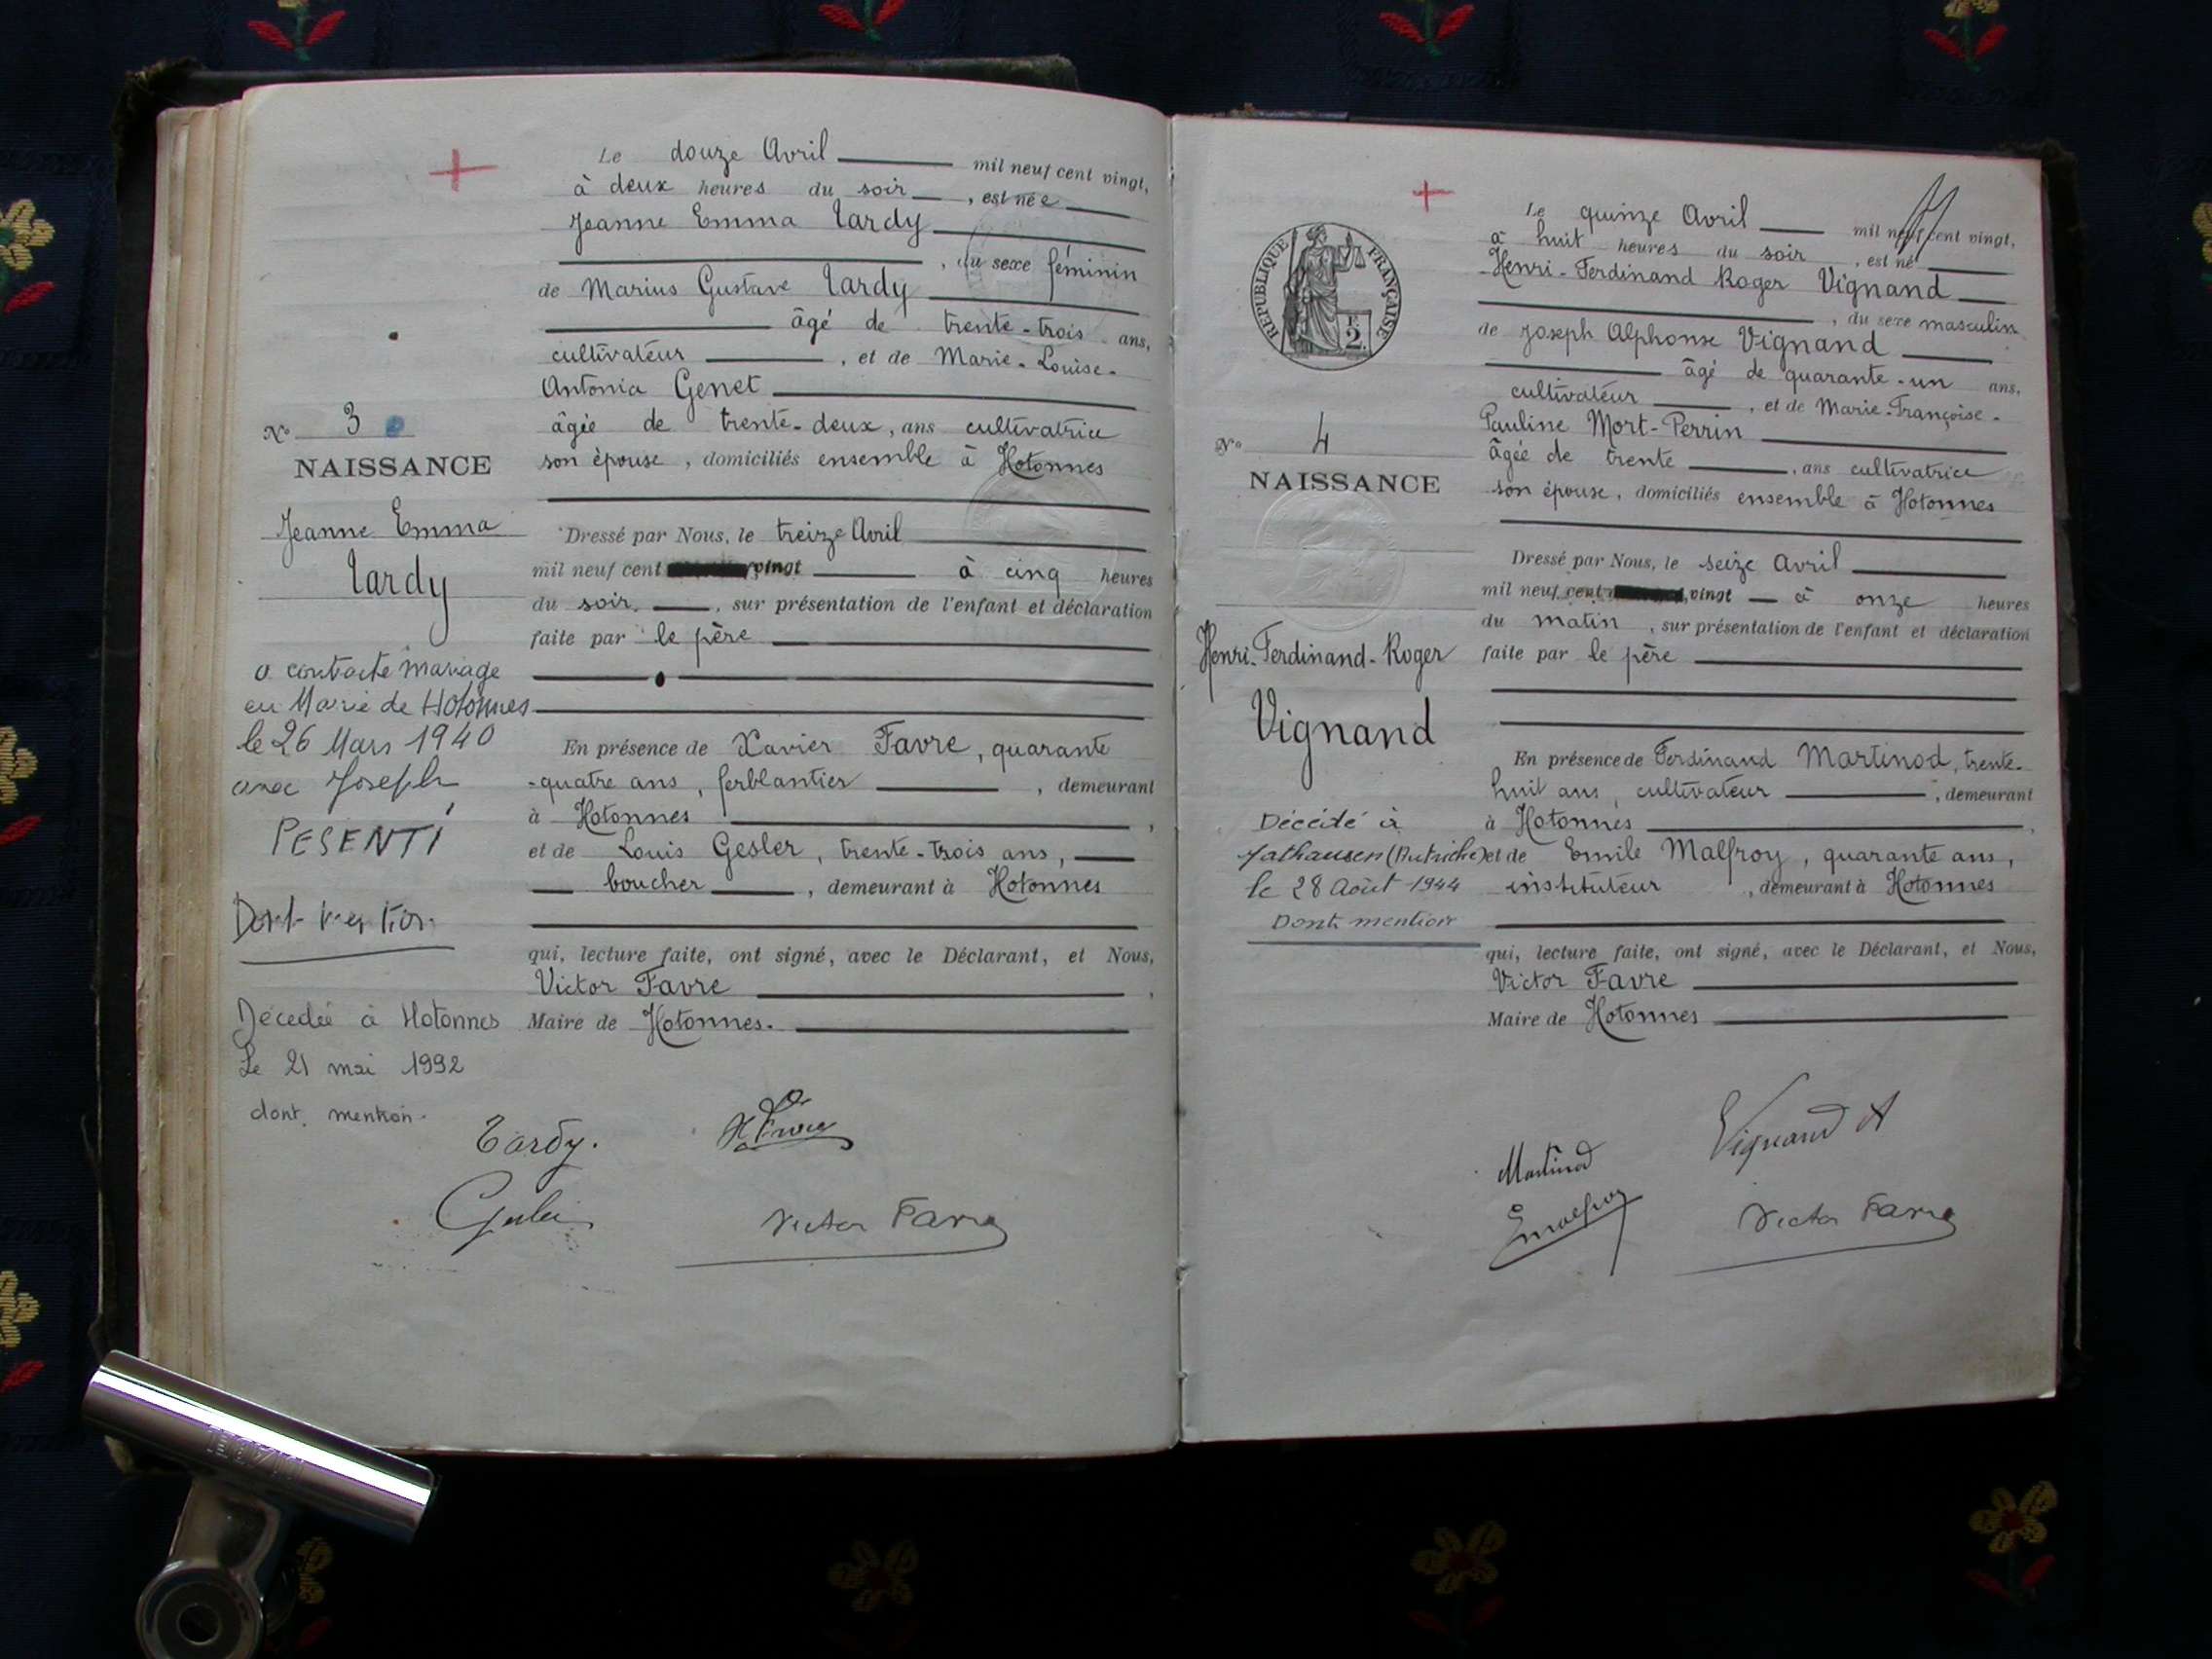 Le douze Avril mil neuf cent vingt,
à deux heures du soir, est née
Jeanne Emma Tardy
, du sexe féminin
de Marius Gustave Tardy
âgé de trente-trois ans,
cultivateur, et de Marie-Louise-
Antonia Genet
âgée de trente-deux, ans cultivatrice
son épouse, domiciliés ensemble à Hotonnes
Dressé par Nous, le treize Avril
mil neuf cent vingt à cinq heures
du soir, sur présentation de l'enfant et déclaration
faite par le père
En présence de Xavier Favre, quarante
-quatre ans, ferblantier, demeurant
à Hotonnes,
et de Louis Gesler, trente-trois ans,
boucher, demeurant à Hotonnes
qui, lecture faite, ont signé, avec le Déclarant, et Nous,
Victor Favre,
Maire de Hotonnes.
No 3
NAISSANCE
Jeanne Emma
Tardy
a contracté mariage
en Mairie de Hotonnes
le 26 Mars 1940
avec Joseph
PESENTI
Dont mention
Décédée à Hotonnes
Le 21 mai 1992
dont mention.
Tardy.
X Favre
Gesler
Victor Favre
RÉPUBLIQUE FRANÇAISE
F.
2
Le quinze Avril mil neuf cent vingt,
à huit heures du soir, est né
Henri-Ferdinand Roger Vignand
, du sexe masculin
de Joseph Alphonse Vignand
âgé de quarante-un ans,
cultivateur, et de Marie-Françoise-
Pauline Mort-Perrin
âgée de trente, ans cultivatrice
son épouse, domiciliés ensemble à Hotonnes
Dressé par Nous, le seize Avril
mil neuf cent vingt à onze heures
du matin, sur présentation de l'enfant et déclaration
faite par le père
En présence de Ferdinand Martinod, trente-
huit ans, cultivateur, demeurant
à Hotonnes,
et de Emile Malfroy, quarante ans,
instituteur, demeurant à Hotonnes
qui, lecture faite, ont signé, avec le Déclarant, et Nous,
Victor Favre
Maire de Hotonnes
No 4
NAISSANCE
Henri-Ferdinand-Roger
Vignand
Décédé à
(Autriche)
le 28 Août 1944
Dont mention
Vignand A
Martinod
Emalfroy
Victor Favre